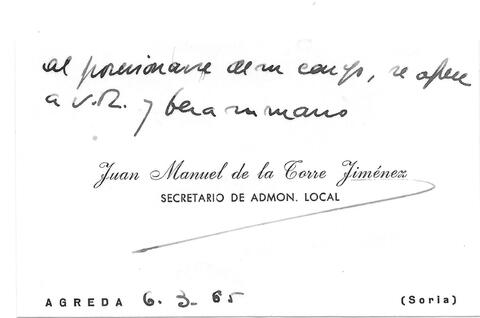 al posesionarse de su cargo, se ofrece
a V.R. y besa su mano
Juan Manuel de la Torre Jiménez
SECRETARIO DE ADMON. LOCAL
AGREDA 6. 3. 65 (Soria)